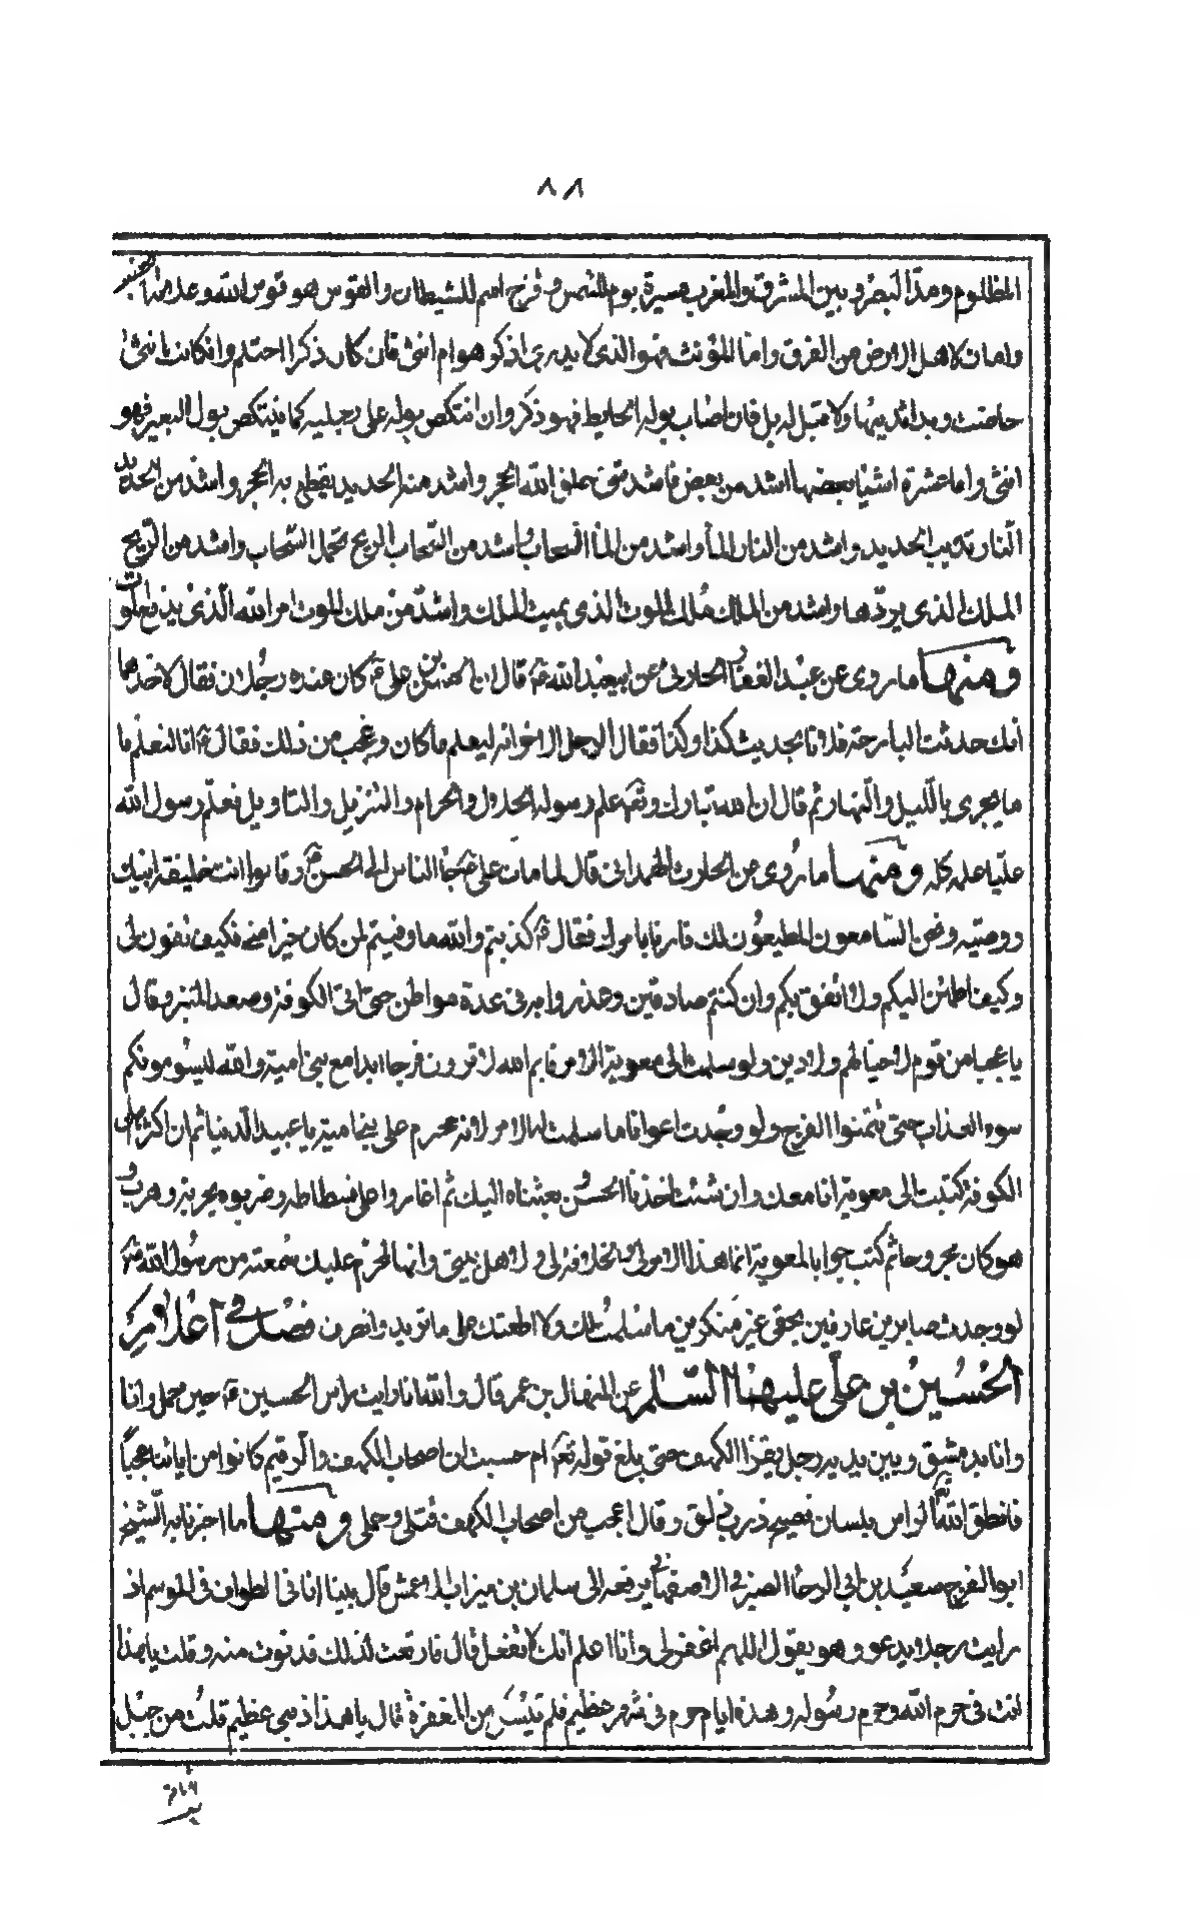 ٨٨
المظلوم ومد البصر وبين المشرق والمغرب مسيرة يوم للشمس وقزح اسم للشيطان والقوس هو قوس الله وعلامة الخصب
وامان لاهل الارض من الغرق واما المؤنث فهو الذي لا يدرى اذكر هو ام انثى فان كان ذكرا احتلم وان كانت انثى
حاضت وبدا ثديها والا قيل له بل فان اصاب بوله الحايط فهو ذكر وان انتكص بوله على رجليه كما ينتكص بول البعير فهو
انثى واما عشرة اشياء بعضها اشد من بعض فاشد شئ خلق الله الحجر واشد منه الحديد يقطع به الحجر واشد من الحديد
النار تذيب الحديد واشد من النار الماء واشد من الماء السحاب واشد من السحاب الريح تحمل السحاب واشد من الريح
الملك الذي يردها واشد من الملك ملك الموت الذي يميت الملك واشد من ملك الموت امر الله الذي يدفع الموت
ومنها ما روى عن عبد الغفار الجازي عن ابي عبد الله ع قال ان الحسن بن علي ع كان عنده رجلان فقال لاحدهما
انك حدثت البارحة فلانا بحديث كذا وكذا فقال الرجل الاخر انه ليعلم ما كان وعجب من ذلك فقال ع انا لنعلم ما
ما يجرى بالليل والنهار ثم قال ان الله تبارك وتع علم رسوله الحلال والحرام والتنزيل والتاويل فعلم رسول الله
عليا علمه كله ومنها ما روى عن الحارث الهمداني قال لما مات على ع جاء الناس الى الحسن ع وقالوا انت خليفة ابيك
ووصيه ونحن السامعون المطيعون لك فامرنا بامرك فقال ع كذبتم والله ما وفيتم لمن كان خيرا مني فكيف تفون لى
وكيف اطمئن اليكم ولا اثق بكم وان كنتم صادقين وغدروا به فى عدة مواطن حتى اتى الكوفة وصعد المنبر وقال
يا عجبا من قوم لا حيا لهم ولا دين ولو سلمت الى معوية الامر فايم الله لا ترون فرجا ابدا مع بنى امية والله ليسومونكم
سوء العذاب حتى تتمنوا الفرج ولو وجدت اعوانا ما سلمت له الامر لانه محرم على بنى امية يا عبيد الدنيا ثم ان اكثر اهل
الكوفة كتبت الى معوية انا معك وان شئت اخذنا الحسن بعثناه اليك ثم اغاروا على فسطاطه وضربوه بحربة وهرب و
هو كان مجروحا ثم كتب جوابا لمعوية انما هذا الامر لى والخلافة لى ولاهل بيتى وانها لمحرم عليك سمعته من رسول الله ص
لو وجدت صابرين عارفين بحقى غير منكرين ما سلمت لك ولا اعطيتك ما تريد وانصرف فصل في اعلام
الحسين بن على عليهما السلم عن المنهال بن عمر قال والله انا رايت راس الحسين ع حين حمل وانا
وانا بدمشق وبين يديه رجل يقرأ الكهف حتى بلغ قوله تع ام حسبت ان اصحاب الكهف والرقيم كانوا من اياتنا عجبا
فانطق الله تع الراس بلسان فصيح ذرب ذلق وقال اعجب من اصحاب الكهف قتلى وحملى ومنها ما اخبرنا به الشيخ
ابو الفرج سعيد بن ابى الرجا الصيرفى الاصفهانى يرفعه الى سليمان بن مهران الاعمش قال بينا انا فى الطواف فى الموسم اذ
رايت رجلا يدعو وهو يقول اللهم اغفر لى وانا اعلم انك لا تفعل قال فارتعت لذلك فدنوت منه وقلت يا هذا
انت فى حرم الله وحرم رسوله وهذه ايام حرم فى شهر عظيم فلم تيئس من المغفرة قال يا هذا ذنبى عظيم قلت من جبل